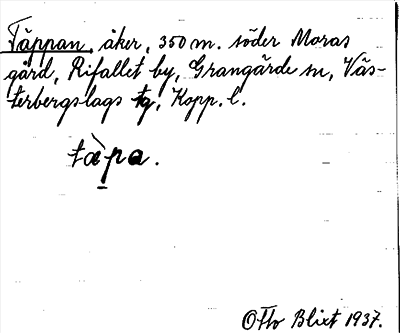 Täppan, åker, 350 m. söder Moras
gård, Rifallet by, Grangärde sn, Väs-
terbergslags tg, Kopp. l.
tàpa.
Otto Blixt 1937.